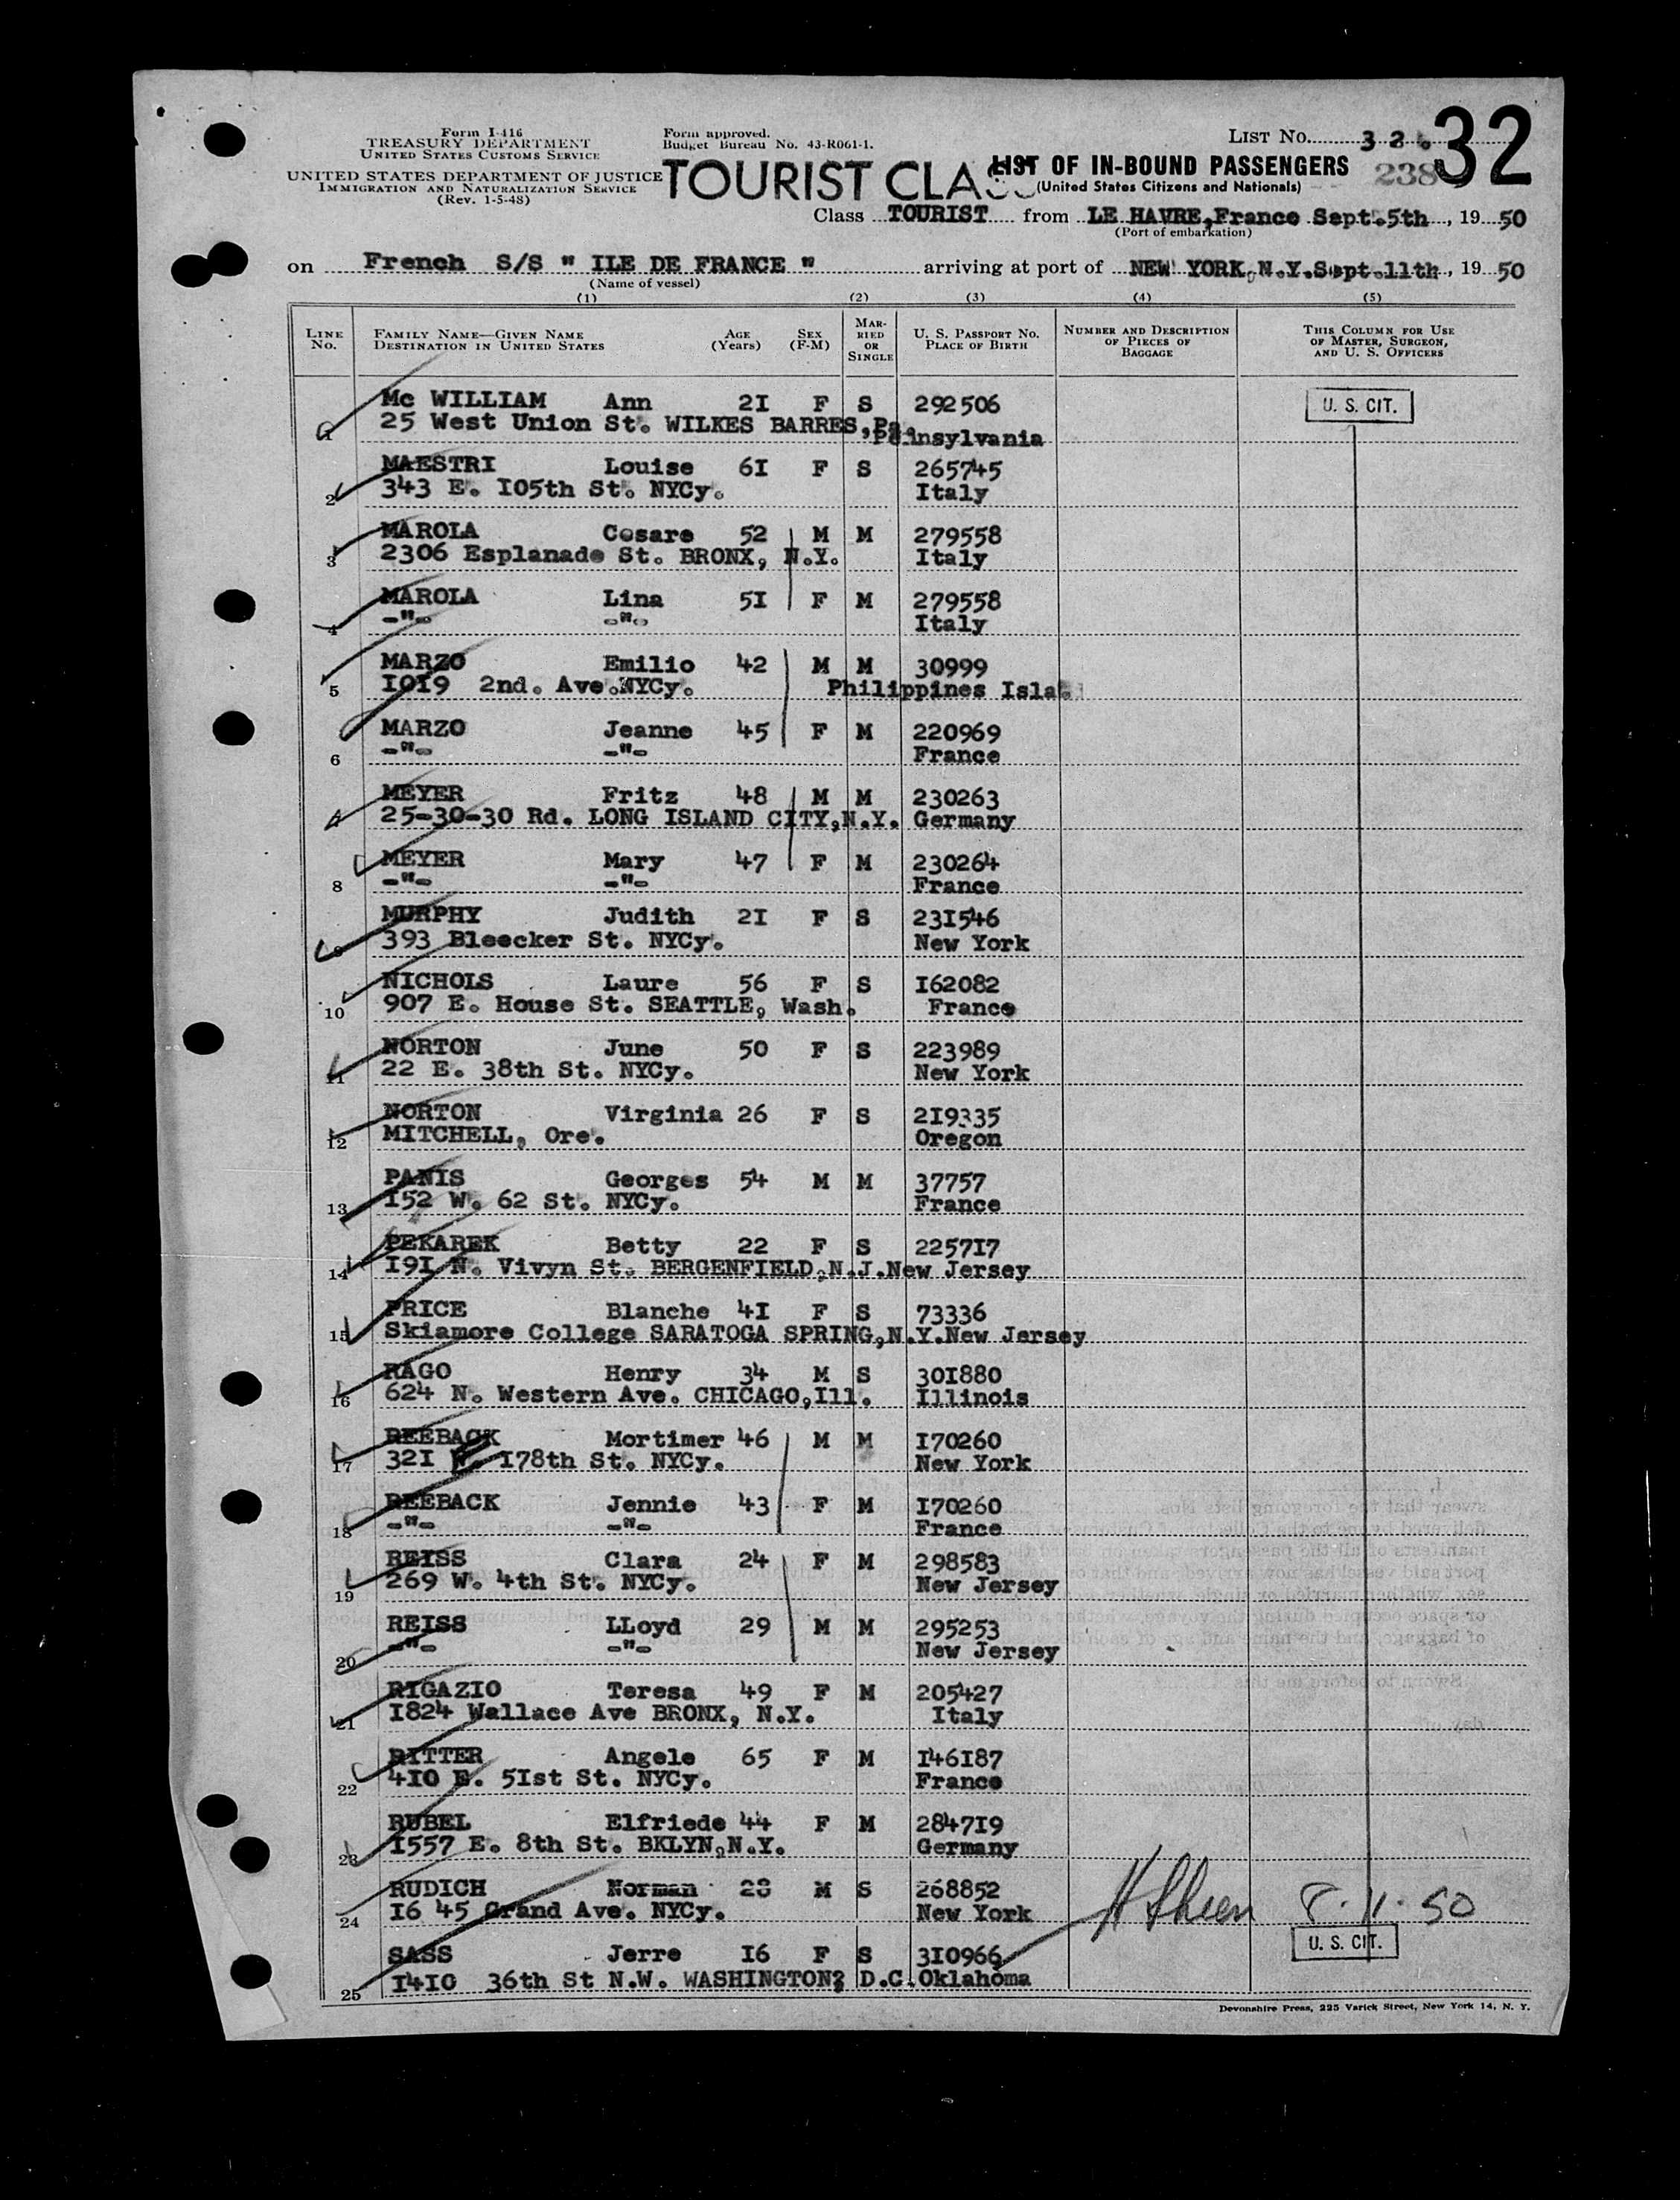 Form I-416
TREASURY DEPARTMENT
UNITED STATES CUSTOMS SERVICE
UNITED STATES DEPARTMENT OF JUSTICE
IMMIGRATION AND NATURALIZATION SERVICE
(Rev. 1-5-48)
Form approved.
Budget Bureau No. 43-R061-1.
LIST No. 32.
32
TOURIST CLASS
LIST OF IN-BOUND PASSENGERS
(United States Citizens and Nationals)
238
Class TOURIST from LE HAVRE,France Sept.5th, 1950
(Port of embarkation)
on French S/S " ILE DE FRANCE " arriving at port of NEW YORK,N.Y.Sept.11th, 1950
(Name of vessel)
(1) (2) (3) (4) (5)
LINE No. FAMILY NAME—GIVEN NAME DESTINATION IN UNITED STATES AGE (Years) SEX (F-M) MARRIED OR SINGLE U. S. PASSPORT NO. PLACE OF BIRTH NUMBER AND DESCRIPTION OF PIECES OF BAGGAGE THIS COLUMN FOR USE OF MASTER, SURGEON, AND U. S. OFFICERS
Mc WILLIAM Ann 2I F S 292506 U. S. CIT.
1 25 West Union St. WILKES BARRES,Pa. Pennsylvania
MAESTRI Louise 6I F S 265745
2 343 E. I05th St. NYCy. Italy
MAROLA Cesare 52 M M 279558
3 2306 Esplanade St. BRONX, N.Y. Italy
MAROLA Lina 5I F M 279558
4 -"- -"- Italy
MARZO Emilio 42 M M 30999
5 I0I9 2nd. Ave.NYCy. Philippines Isla.
MARZO Jeanne 45 F M 220969
6 -"- -"- France
MEYER Fritz 48 M M 230263
7 25-30-30 Rd. LONG ISLAND CITY,N.Y. Germany
MEYER Mary 47 F M 230264
8 -"- -"- France
MURPHY Judith 2I F S 23I546
9 393 Bleecker St. NYCy. New York
NICHOLS Laure 56 F S I62082
10 907 E. House St. SEATTLE, Wash. France
NORTON June 50 F S 223989
11 22 E. 38th St. NYCy. New York
NORTON Virginia 26 F S 2I9335
12 MITCHELL, Ore. Oregon
PANIS Georges 54 M M 37757
13 I52 W. 62 St. NYCy. France
PEKAREK Betty 22 F S 2257I7
14 I9I N. Vivyn St. BERGENFIELD,N.J.New Jersey
PRICE Blanche 4I F S 73336
15 Skiamore College SARATOGA SPRING,N.Y.New Jersey
RAGO Henry 34 M S 30I880
16 624 N. Western Ave. CHICAGO,Ill. Illinois
REEBACK Mortimer 46 M M I70260
17 32I W. I78th St. NYCy. New York
REEBACK Jennie 43 F M I70260
18 -"- -"- France
REISS Clara 24 F M 298583
19 269 W. 4th St. NYCy. New Jersey
REISS LLoyd 29 M M 295253
20 -"- -"- New Jersey
RIGAZIO Teresa 49 F M 205427
21 I824 Wallace Ave BRONX, N.Y. Italy
RITTER Angele 65 F M I46I87
22 4I0 E. 5Ist St. NYCy. France
RUBEL Elfriede 44 F M 2847I9
23 I557 E. 8th St. BKLYN,N.Y. Germany
RUDICH Norman 28 M S 268852
24 I6 45 Grand Ave. NYCy. New York
SASS Jerre I6 F S 3I0966 U. S. CIT.
25 I4I0 36th St N.W. WASHINGTON, D.C.Oklahoma
Devonshire Press, 225 Varick Street, New York 14, N. Y.